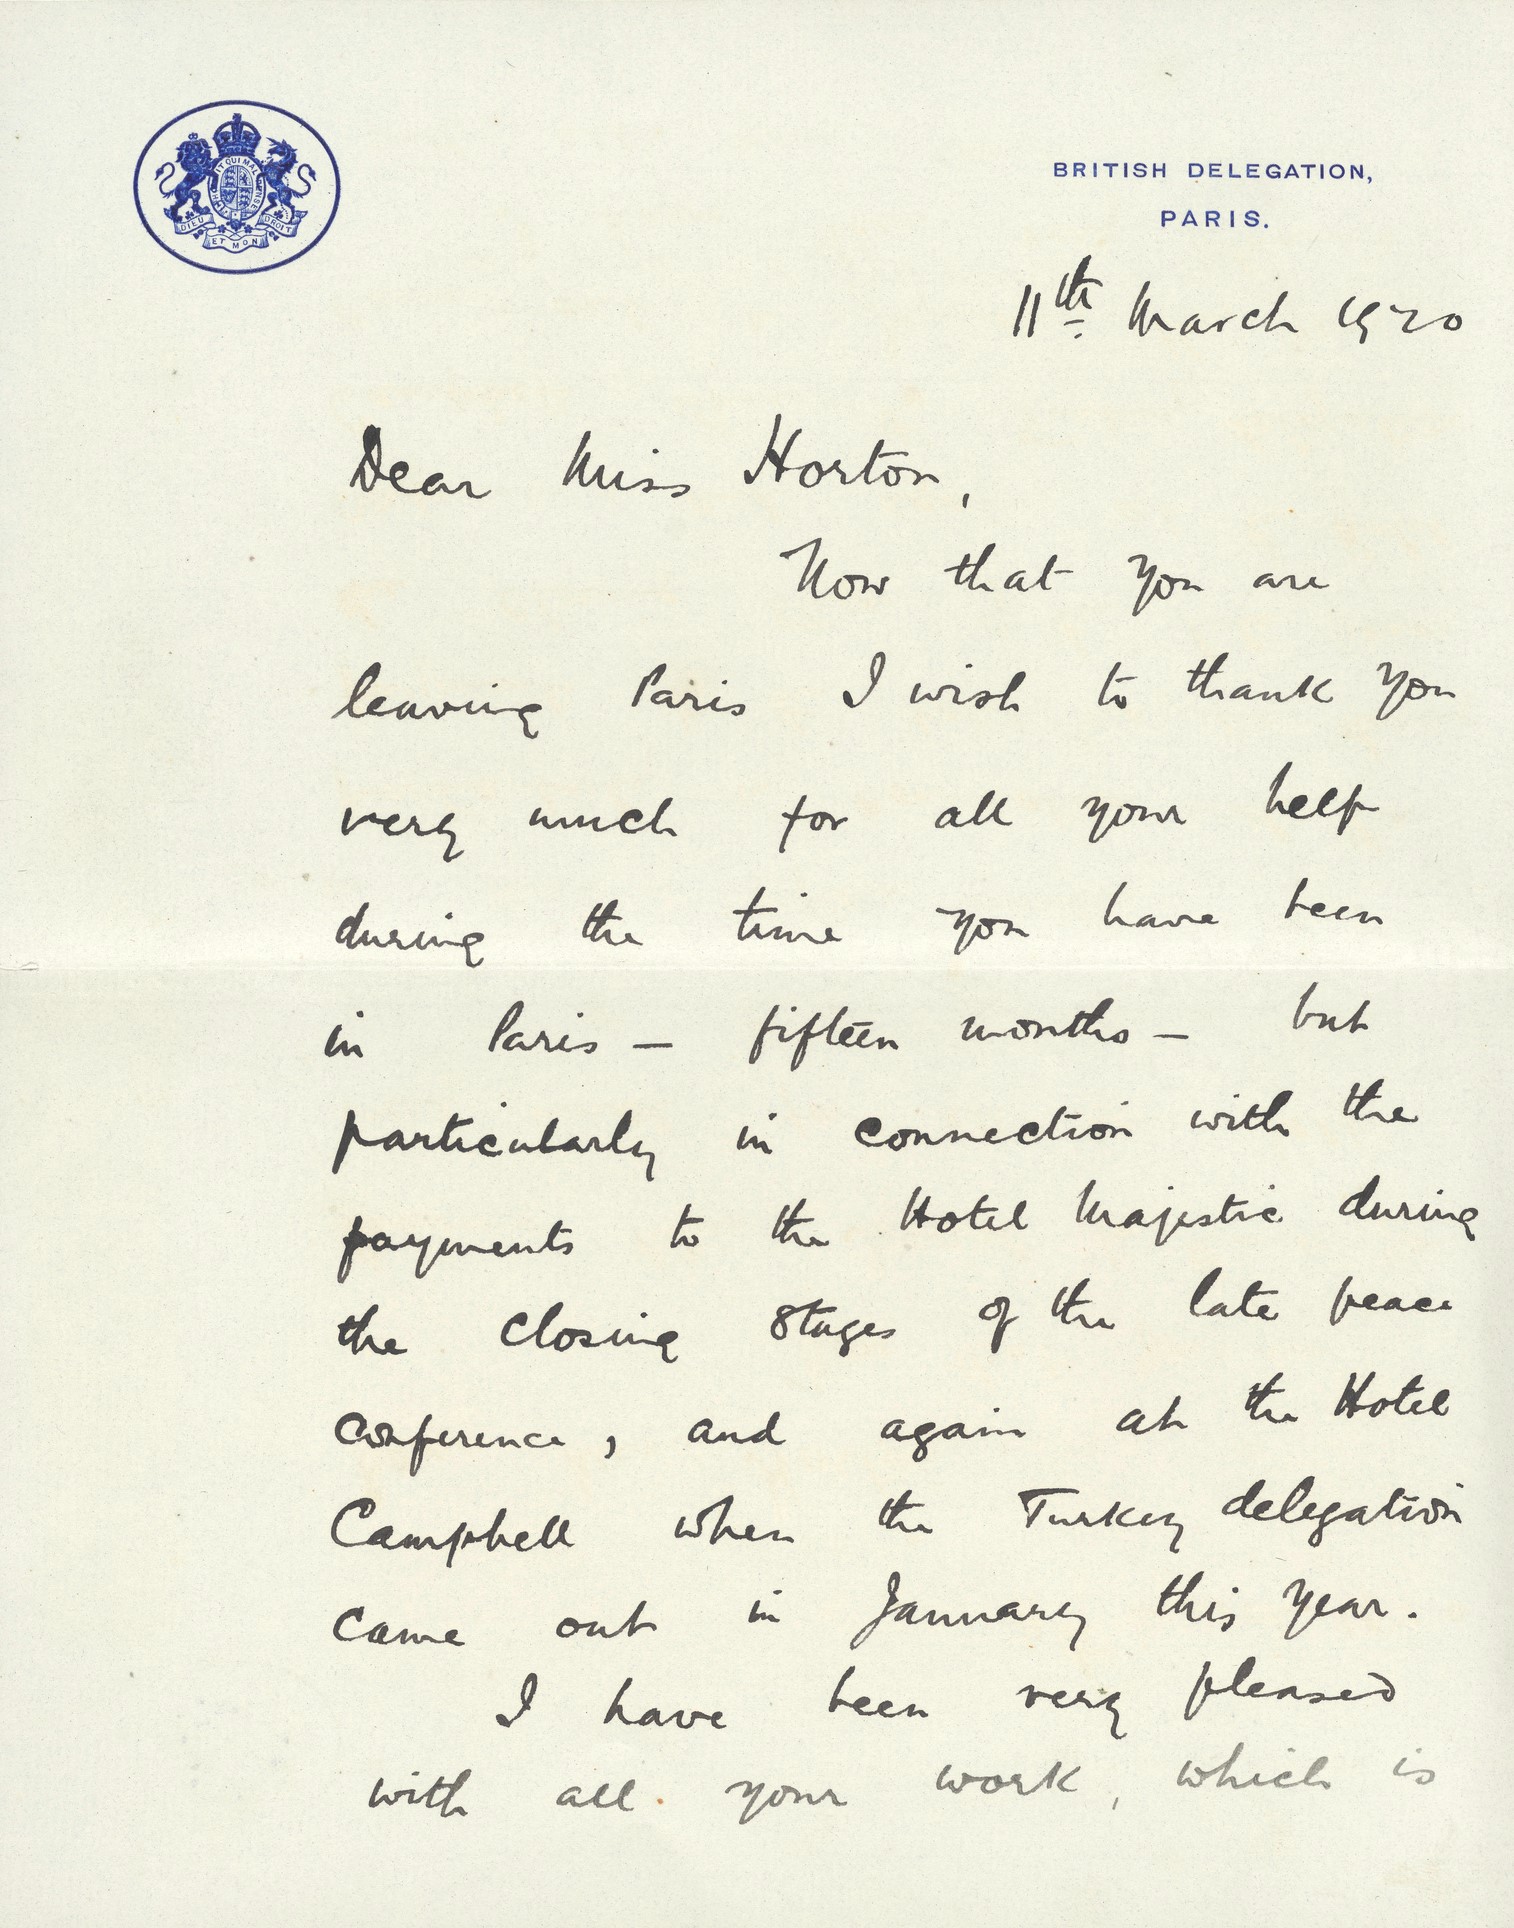 HONI SOIT QUI MAL Y PENSE
DIEU ET MON DROIT
BRITISH DELEGATION,
PARIS.
11th March 1920
Dear Miss Horton,
Now that you are
leaving Paris I wish to thank you
very much for all your help
during the time you have been
in Paris — fifteen months — but
particularly in connection with the
payments to the Hotel Majestic during
the closing stages of the late peace
conference, and again at the Hotel
Campbell when the Turkey delegation
came out in January this year.
I have been very pleased
with all your work, which is